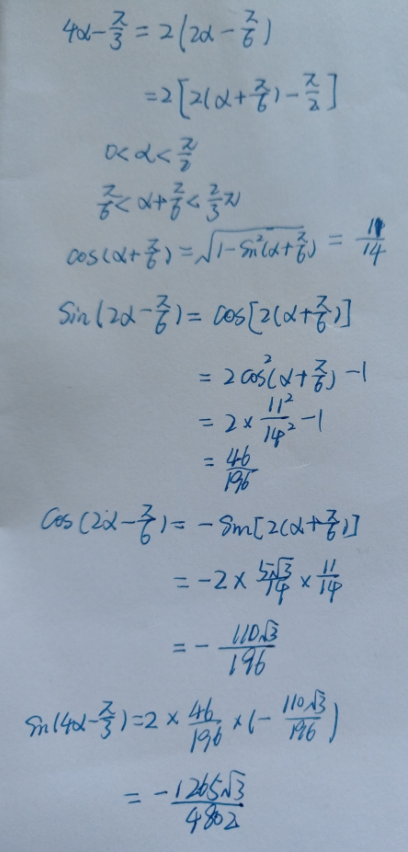 4α-π/3=2(2α-π/6)
=2[2(α+π/6)-π/2]
0<α<π/2
π/6<α+π/6<2/3π
cos(α+π/6)=√(1-sin²(α+π/6))=11/14
sin(2α-π/6)=cos[2(α+π/6)]
=2cos²(α+π/6)-1
=2×11²/14²-1
=46/196
cos(2α-π/6)=-sin[2(α+π/6)]
=-2×5√3/14×11/14
=-110√3/196
sin(4α-π/3)=2×46/196×(-110√3/196)
=-1265√3/4802